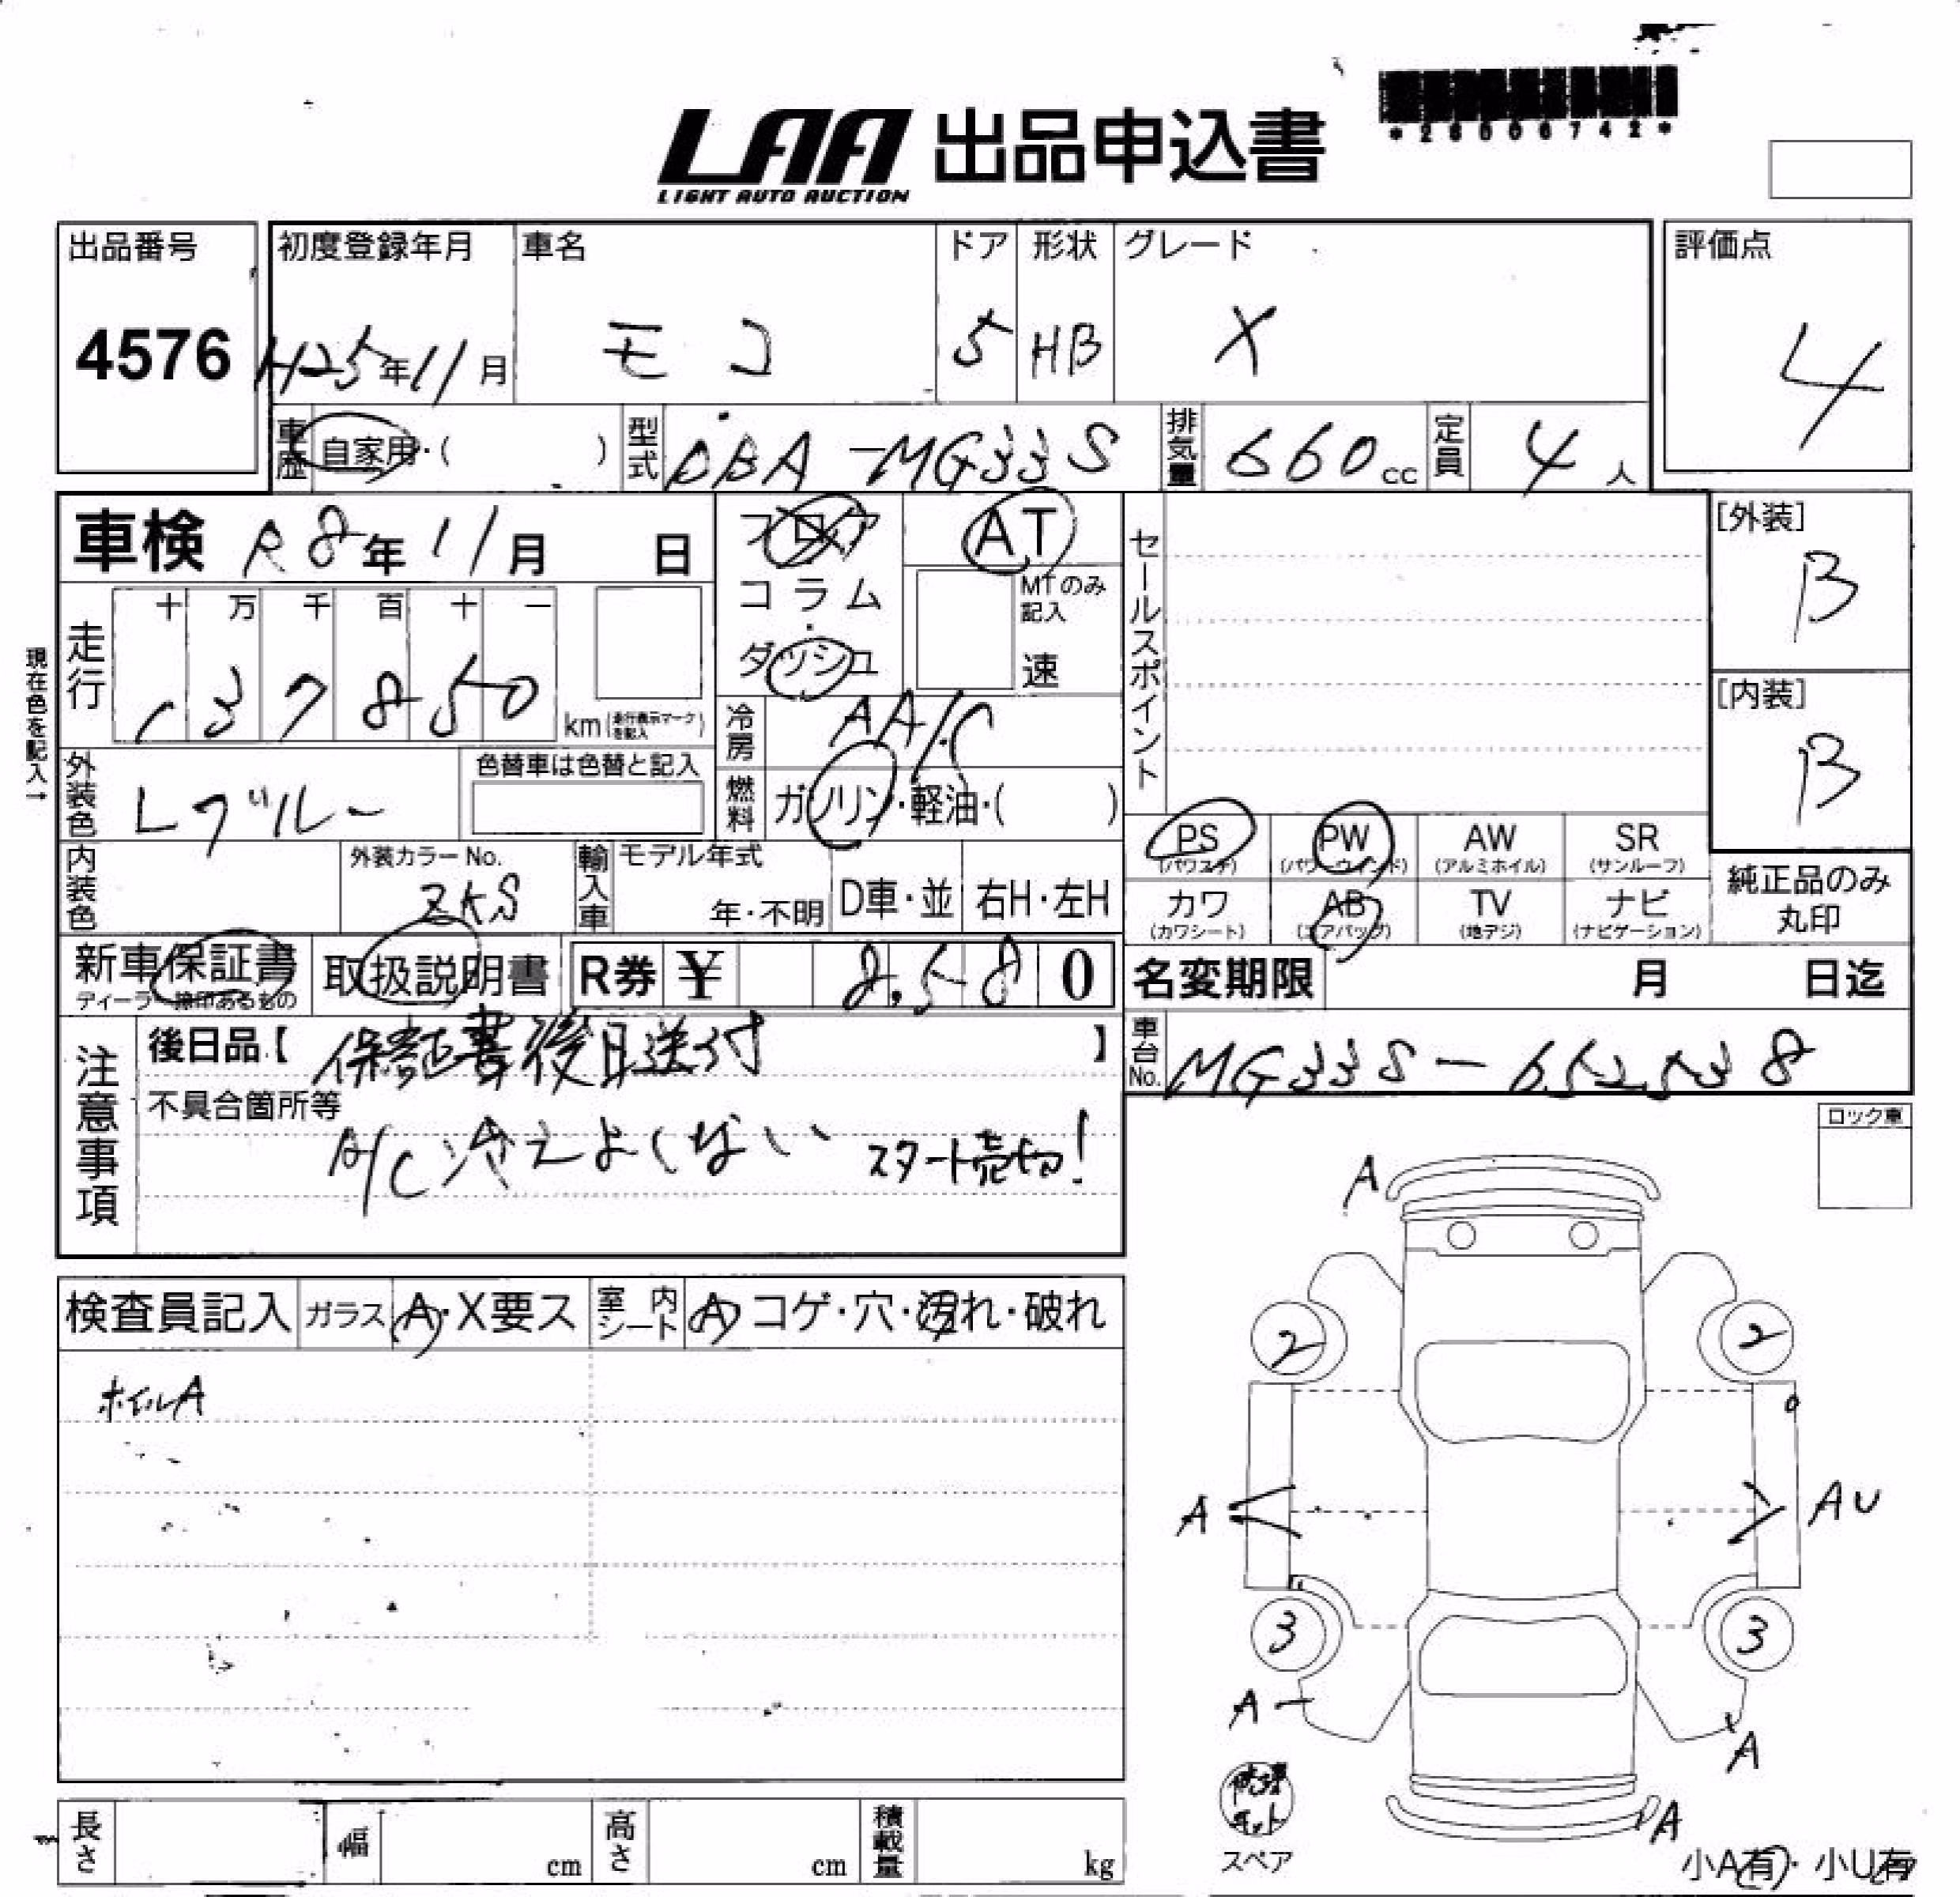 *26006742*
LAA 出品申込書
LIGHT AUTO AUCTION
出品番号 初度登録年月 車名 ドア 形状 グレード 評価点
4576 H25年11月 モコ 5 HB X 4
車歴 自家用・( ) 型式 DBA-MG33S 排気量 660cc 定員 4人
車検 R8年11月 日 フロア AT セールスポイント [外装]
B
コラム MTのみ記入
ダッシュ 速
現在色を記入→
走行 十 万 千 百 十 一
137850 km(走行表示マークを記入)
[内装]
B
冷房 AA/C
外装色 Lブルー 色替車は色替と記入 燃料 ガソリン・軽油・( )
PS (パワステ) PW (パワーウィンド) AW (アルミホイル) SR (サンルーフ)
内装色 外装カラーNo. ZKS 輸入車 モデル年式 年・不明 D車・並 右H・左H
カワ (カワシート) AB (エアバッグ) TV (地デジ) ナビ (ナビゲーション) 純正品のみ丸印
新車保証書 ディーラー捺印あるもの 取扱説明書 R券 ¥ 8,580 名変期限 月 日迄
注意事項 後日品【 保証書後日送付 】 車台No. MG33S-652538
不具合箇所等
A/C冷えよくない スタート売切!
ロック車
A
検査員記入 ガラス A・X要ス 室内シート A コゲ・穴・汚れ・破れ
2 2
ホイルA
A AU
3 3
A A
修理キット
スペア
A
長さ 幅 cm 高さ cm 積載量 kg
小A有・小U有